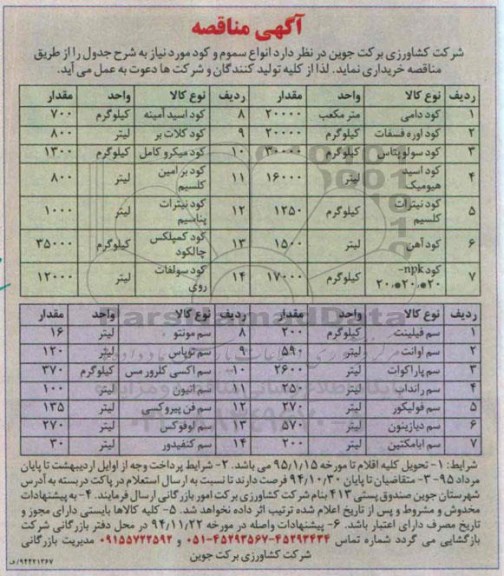 آگهی مناقصه
شرکت کشاورزی برکت جوین در نظر دارد انواع سموم و کود مورد نیاز به شرح جدول را از طریق
مناقصه خریداری نماید. لذا از کلیه تولید کنندگان و شرکت ها دعوت به عمل می آید.
ردیف نوع کالا واحد مقدار ردیف نوع کالا واحد مقدار
۱ کود دامی متر مکعب ۲۰۰۰۰ ۸ کود اسید آمینه کیلوگرم ۷۰۰
۲ کود اوره فسفات کیلوگرم ۲۰۰۰۰ ۹ کود کلات بر لیتر ۸۰۰
۳ کود سولوپتاس کیلوگرم ۳۰۰۰۰ ۱۰ کود میکرو کامل کیلوگرم ۱۳۰۰
۴ کود اسید هیومیک لیتر ۱۶۰۰۰ ۱۱ کود بر امین کلسیم لیتر ۸۰۰
۵ کود نیترات کلسیم کیلوگرم ۱۲۵۰ ۱۲ کود نیترات پتاسیم لیتر ۱۰۰۰
۶ کود آهن لیتر ۱۵۰۰ ۱۳ کود کمپلکس چالکود کیلوگرم ۳۵۰۰۰
۷ کود npk- ۲۰،۲۰،۲۰ کیلوگرم ۱۷۰۰۰ ۱۴ کود سولفات روی لیتر ۱۲۰۰۰
ردیف نوع کالا واحد مقدار ردیف نوع کالا واحد مقدار
۱ سم فیلینت کیلوگرم ۲۰۰ ۸ سم مونتو لیتر ۱۶
۲ سم اوانت لیتر ۵۹۰ ۹ سم توپاس لیتر ۱۲۰
۳ سم پاراکوات لیتر ۲۶۰۰ ۱۰ سم اکسی کلرور مس کیلوگرم ۳۷۰
۴ سم رانداپ لیتر ۲۵۰ ۱۱ سم اتیون لیتر ۱۰۰
۵ سم فولیکور لیتر ۲۷۰ ۱۲ سم فن پیروکسی لیتر ۱۳۵
۶ سم دیازینون لیتر ۵۷۰ ۱۳ سم لوفوکس لیتر ۲۷۰
۷ سم ابامکتین لیتر ۲۰۰ ۱۴ سم کنفیدور لیتر ۳۰
شرایط: ۱- تحویل کلیه اقلام تا مورخه ۹۵/۱/۱۵ می باشد. ۲- شرایط پرداخت وجه از اوایل اردیبهشت تا پایان
مرداد ۹۵ ۳- متقاضیان تا پایان ۹۴/۱۰/۳۰ فرصت دارند تا نسبت به ارسال استعلام در پاکت در بسته به آدرس
شهرستان جوین صندوق پستی ۴۱۳ بنام شرکت کشاورزی برکت امور بازرگانی ارسال فرمایند. ۴- به پیشنهادات
مخدوش و مشروط و پس از تاریخ اعلام شده ترتیب اثر داده نخواهد شد. ۵- کلیه کالاها بایستی دارای مجوز و
تاریخ مصرف دارای اعتبار باشد. ۶- پیشنهادات واصله در مورخه ۹۴/۱۱/۲۲ در محل دفتر بازرگانی شرکت
بازگشایی می گردد شماره تماس ۴۵۲۹۳۴۳۴-۴۵۲۹۳۵۶۷-۰۵۱ و ۰۹۱۵۵۷۲۲۵۹۲ مدیریت بازرگانی
شرکت کشاورزی برکت جوین
۹۴۴۲۱۲۶۷/ف